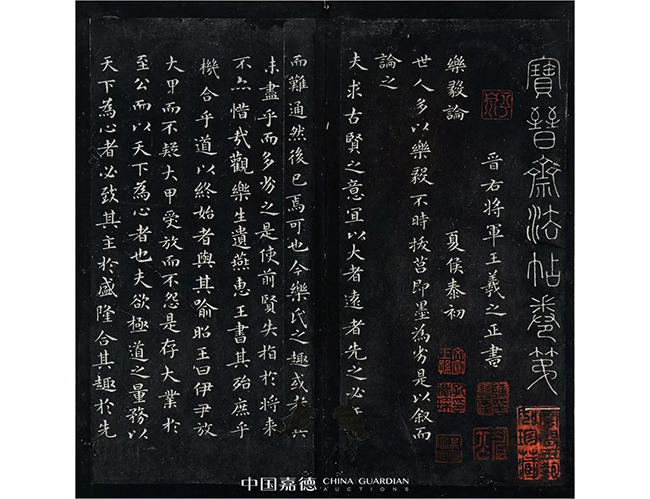 寶晉齋法帖卷第一
晉右將軍王羲之正書
樂毅論
夏侯泰初
世人多以樂毅不時拔莒即墨為劣是以叙而
論之
夫求古賢之意宜以大者遠者先之必
而難通然後已焉可也今樂氏之趣或者其
未盡乎而多劣之是使前賢失指於將来
不亦惜哉觀樂生遺燕惠王書其殆庶乎
機合乎道以終始者與其喻昭王曰伊尹放
大甲而不疑大甲受放而不怨是存大業於
至公而以天下為心者也夫欲極道之量務以
天下為心者必致其主於盛隆合其趣於先
中国嘉德 CHINA GUARDIAN
AUCTIONS